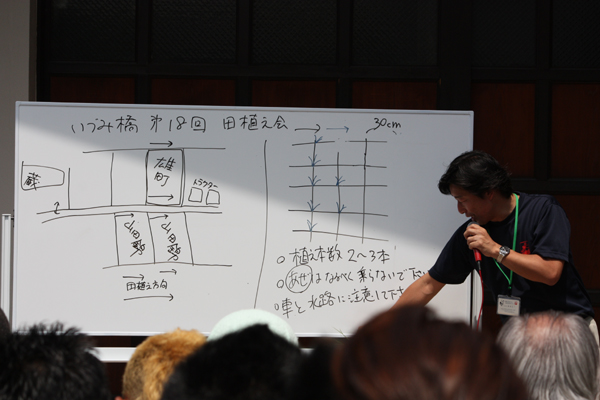 いづみ橋 第18回 田植え会
30cm
蔵
雄町
トラクター
山田錦
山田錦
田植え方向
○ 植え本数 2～3本
○ あぜはなるべく乗らないで下
○ 車と水路に注意して下